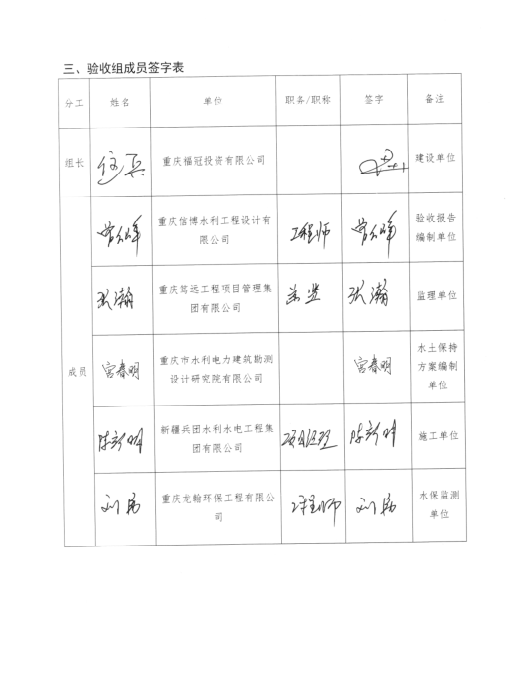 三、验收组成员签字表
分工 姓名 单位 职务/职称 签字 备注
组长 重庆福冠投资有限公司 建设单位
重庆信博水利工程设计有
限公司
工程师
验收报告
编制单位
张瀚
重庆笃远工程项目管理集
团有限公司
张瀚
监理单位
成员
宫春明
重庆市水利电力建筑勘测
设计研究院有限公司
宫春明
水土保持
方案编制
单位
陈新明
新疆兵团水利水电工程集
团有限公司
项目经理
陈新明
施工单位
刘勇
重庆龙翰环保工程有限公
司
工程师
刘勇
水保监测
单位